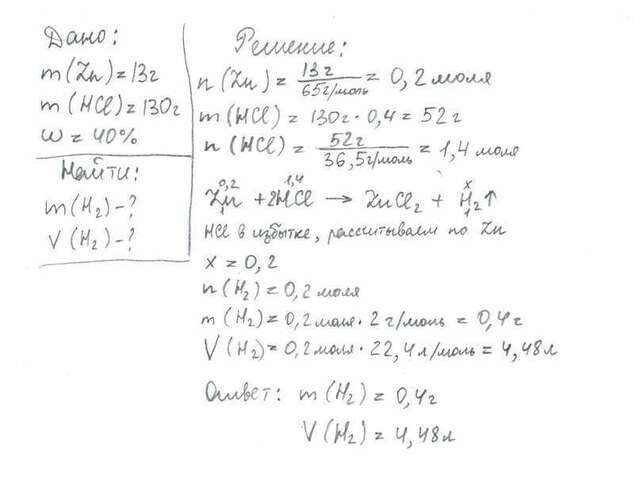 Дано:
m(Zn)=13г
m(HCl)=130г
ω=40%
Найти:
m(H₂)-?
V(H₂)-?
Решение:
n(Zn)=13г/65г/моль=0,2моля
m(HCl)=130г·0,4=52г
n(HCl)=52г/36,5г/моль=1,4моля
0,2 1,4 x
Zn+2HCl→ZnCl₂+H₂↑
1 1
HCl в избытке, рассчитываем по Zn
x=0,2
n(H₂)=0,2моля
m(H₂)=0,2моля·2г/моль=0,4г
V(H₂)=0,2моля·22,4л/моль=4,48л
Ответ: m(H₂)=0,4г
V(H₂)=4,48л